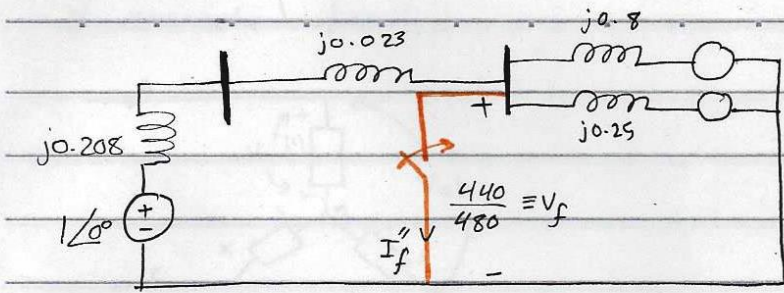 j0.8
j0.023
+
j0.25
j0.208
440/480 ≡ Vf
1∠0°
+
-
I"f
-